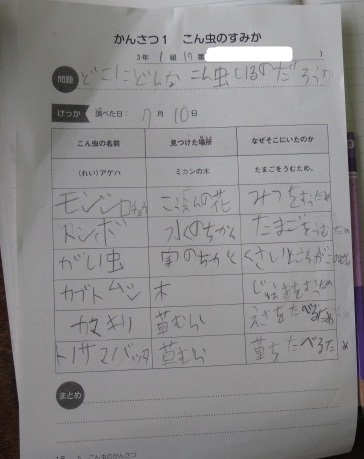 かんさつ1 こん虫のすみか
3年 1組 17番
問題 どこにどんなこん虫いるのだろうか
けっか 調べた日: 7月 10日
こん虫の名前 見つけた場所 なぜそこにいたのか
(れい)アゲハ ミカンの木 たまごをうむため。
モンシロチョウ こうえんの花 みつをすうため
トンボ 水のちかく たまごをうむため
がい虫 くさいところが
カブトムシ 木 じゅえきをすうため
カマキリ 草むら えさをたべるため
トノサマバッタ 草むら 草をたべるため
まとめ
こん虫のかんさつ